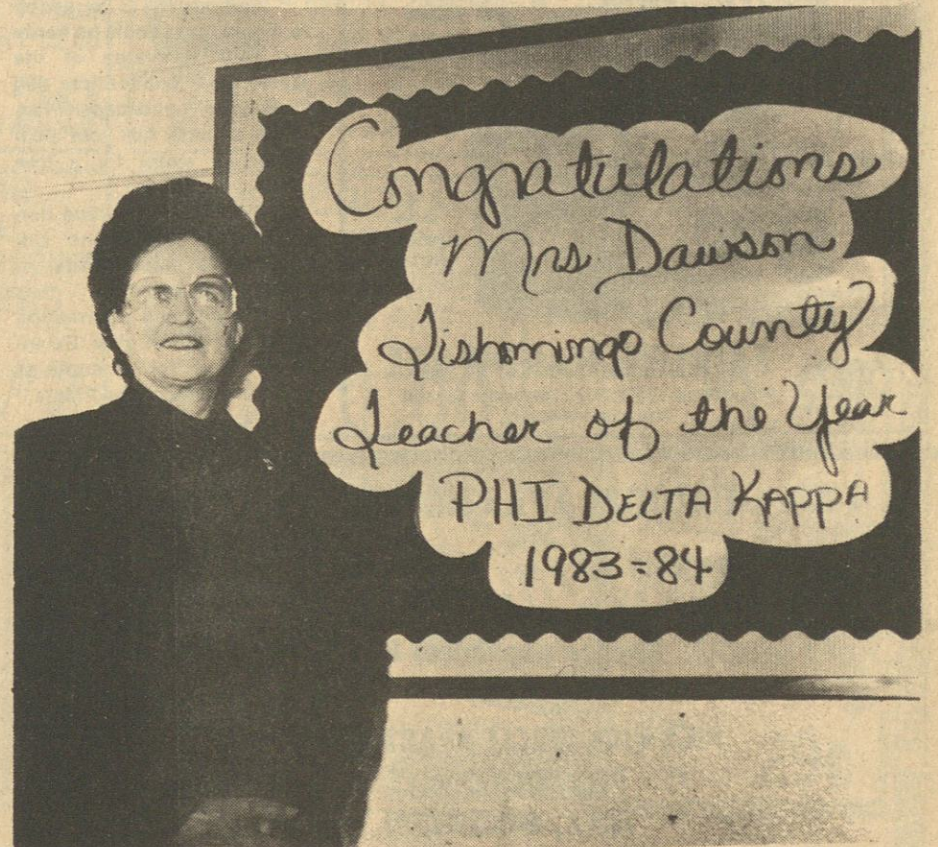 Congratulations
Mrs Dawson
Tishomingo County
Teacher of the Year
PHI DELTA KAPPA
1983-84